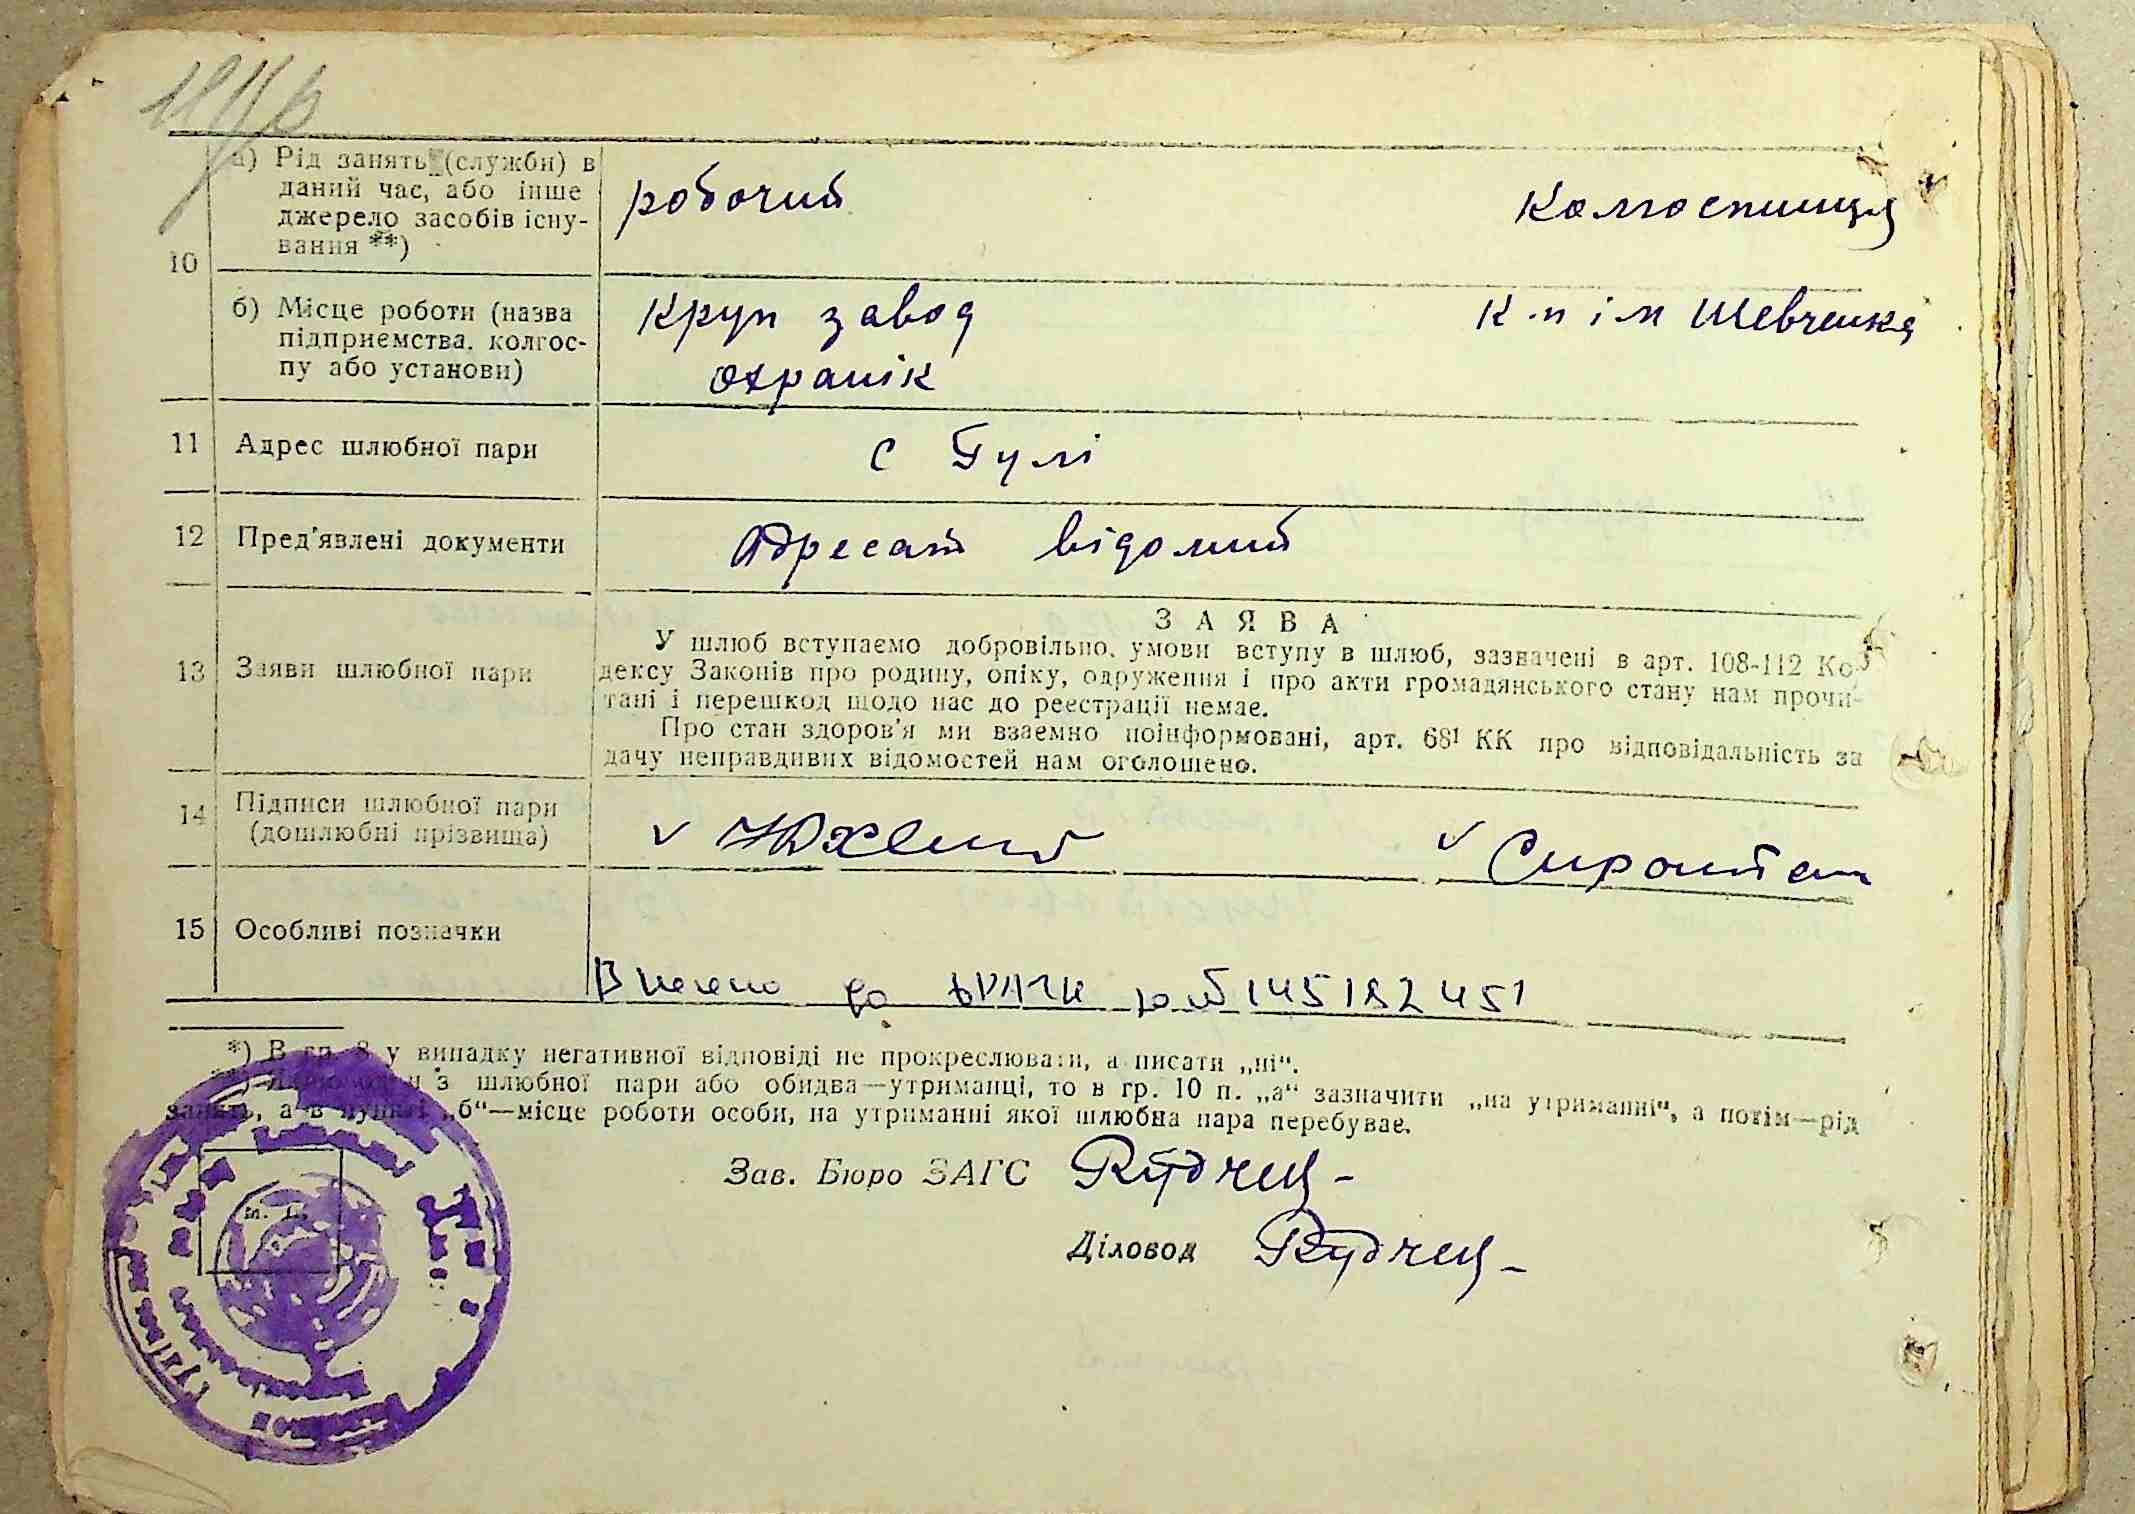 а) Рід занять (служби) в
даний час, або інше
джерело засобів існу-
вання **)
робочий
Колгоспниця
10
б) Місце роботи (назва
підприємства, колгос-
пу або установи)
Круп завод
охранік
К-п ім Шевченка
11 Адрес шлюбної пари
с Гулі
12 Пред'явлені документи
Адресат відомий
З А Я В А
13 Заяви шлюбної пари
У шлюб вступаємо добровільно, умови вступу в шлюб, зазначені в арт. 108-112 Ко-
дексу Законів про родину, опіку, одруження і про акти громадянського стану нам прочи-
тані і перешкод щодо нас до реестрації немає.
Про стан здоров'я ми взаємно поінформовані, арт. 68¹ КК про відповідальність за
дачу неправдивих відомостей нам оголошено.
14 Підписи шлюбної пари
(дошлюбні прізвища)
v
v
15 Особливі позначки
Внесено до 145182451
*) В гр. 8 у випадку негативної відповіді не прокреслювати, а писати „ні“.
з шлюбної пари або обидва—утриманці, то в гр. 10 п. „а“ зазначити „на утриманні“, а потім—рід
занять, а в пункті „б“—місце роботи особи, на утриманні якої шлюбна пара перебуває.
Зав. Бюро ЗАГС
Діловод